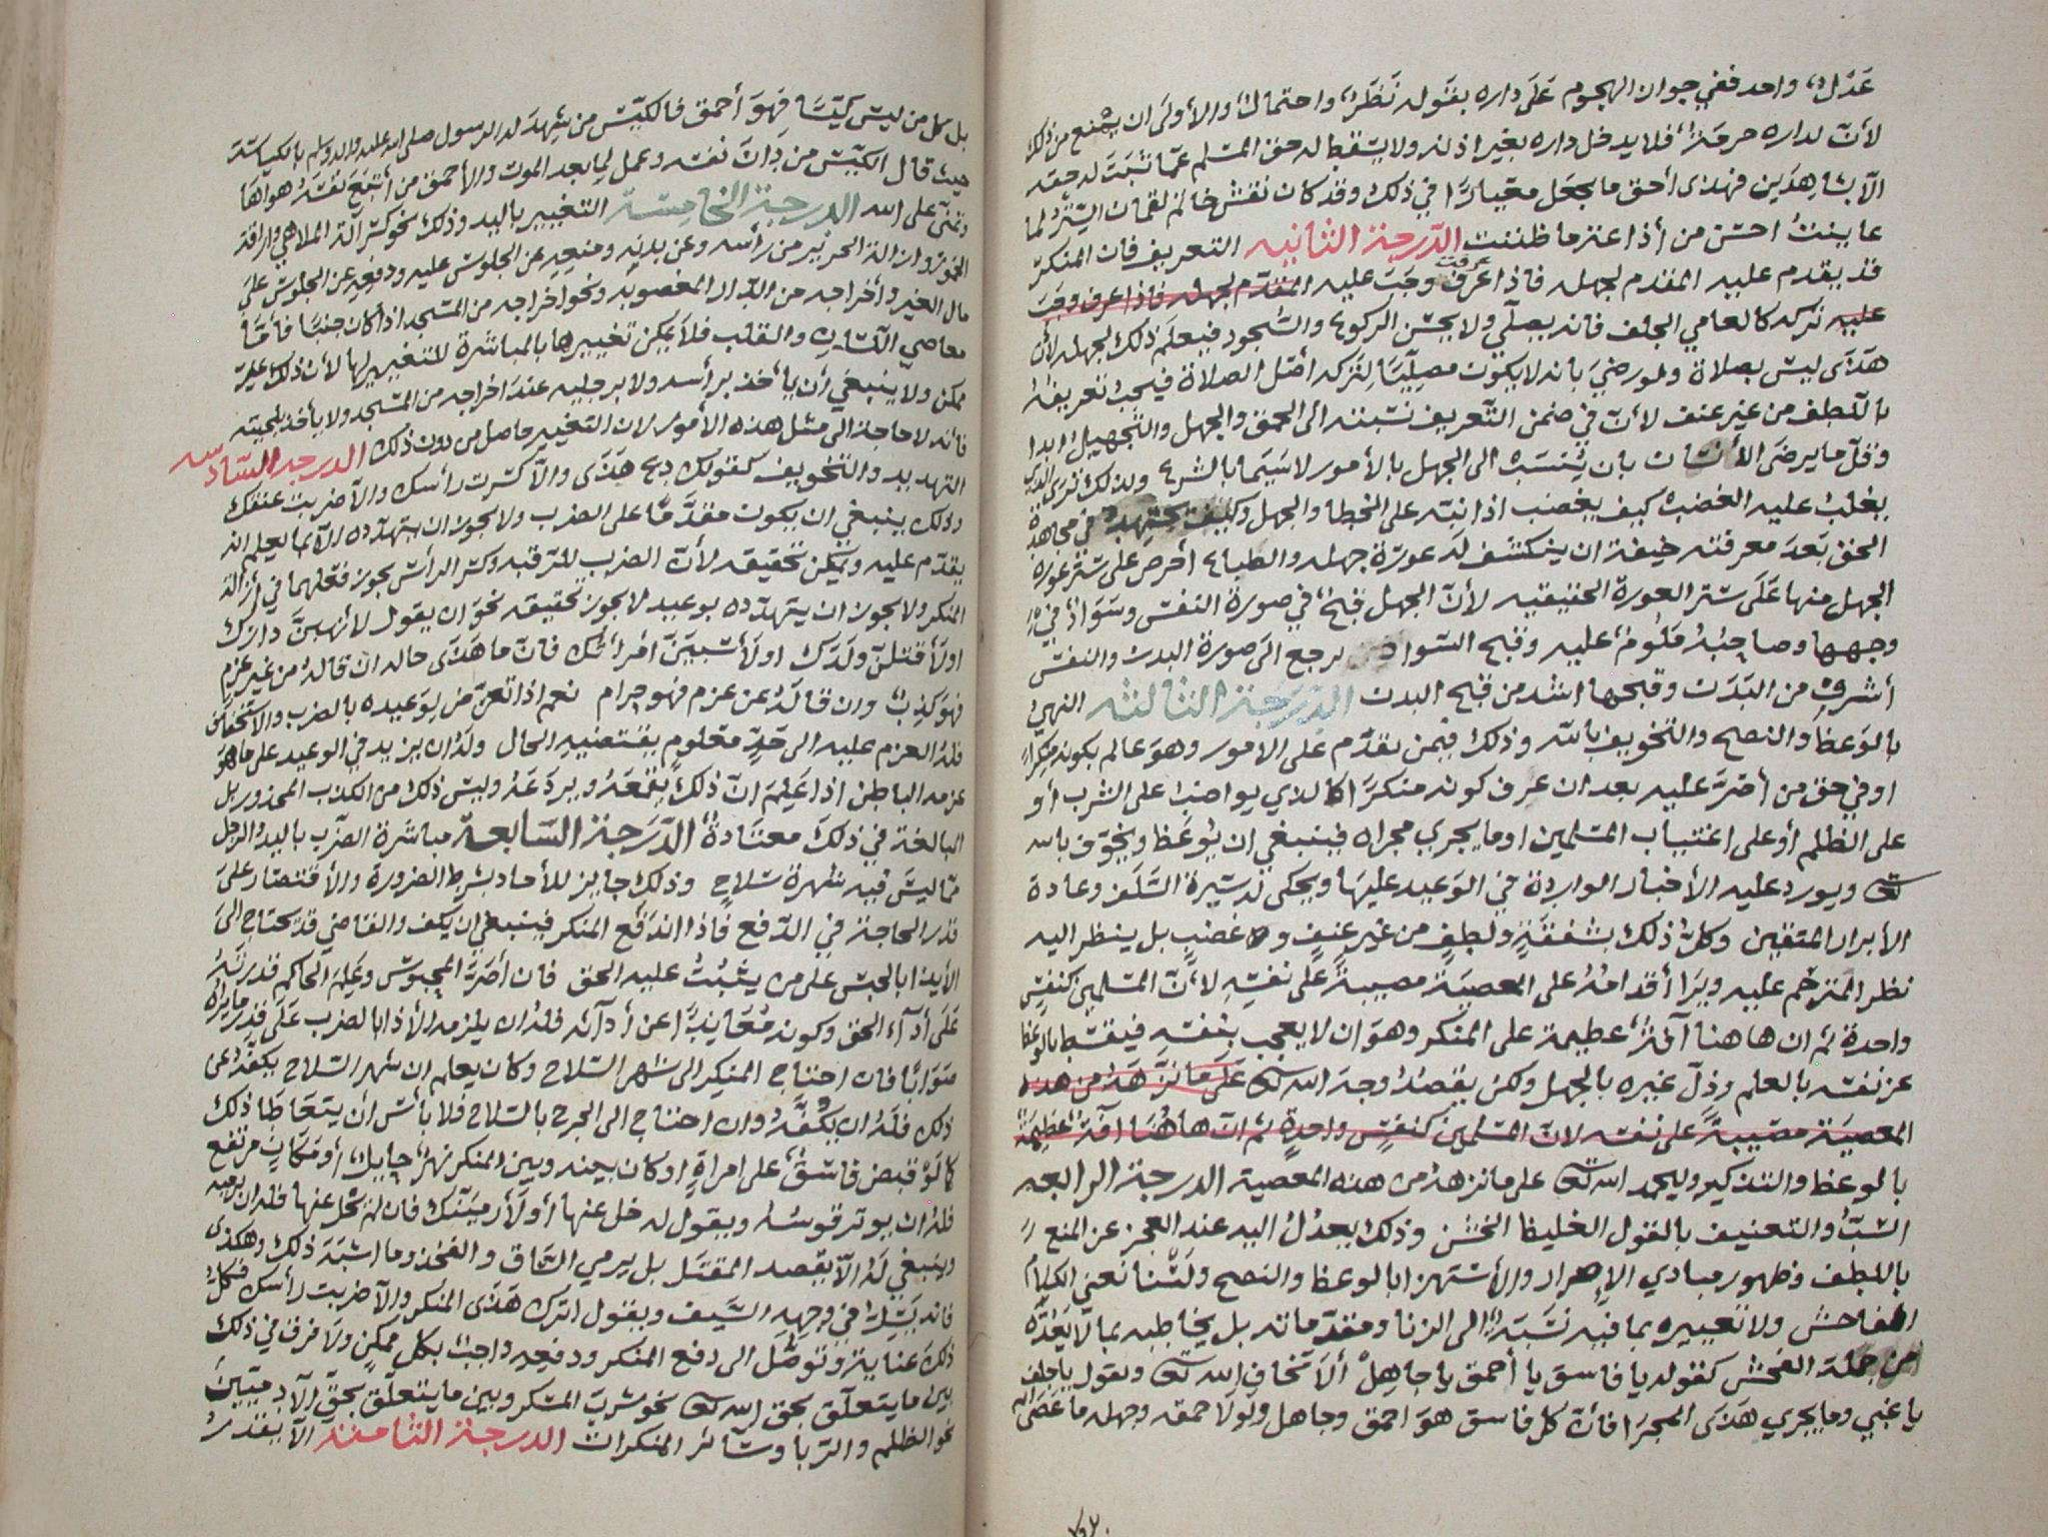 عَدْل، واحد ففي جوان الهجوم عَلَى داره بقَوله نَظَر، واحتمال، والأولَى ان يمنع من ذلك
لأنّ لداره حرمَة، فلا يدخل داره بغير اذنه ولا يسقط له حق المسلم عمّا ثبَتَ له حقه
الّا بشاهِدَين فهذى أحق ما يجعَل معيارًا في ذلك وقد كان نقش خاتم لقمان السّتر لما
عاينتُ احسَن من أذاعة ما ظننت الدّرجة الثانيه التعريف فان المنكر
قد يقدم عليه المقدم لجهله فاذا عرف وجَبَ عليه المقدّم لجهله فاذا عرف وجَبَ
عليه تركه كالعامي الجلف فانه يصلّي ولا يحسن الركوع والسّجود فيعلَم ذلك لجهله لأن
هَذَى ليسَ بصلاة ولو رضيَ بانه لا يكون مصلّيًا لتركه اصل الصلاة فيجبُ تعريفهُ
باللّطف من غير عنف لأنّ في ضمن التّعريف نسبته الى الحمق والجهل والتّجهيل ابدا
وقلّ ما يرضَى الأنسَان بان يُنسَبَ الى الجهل بالأمور لا سَيما بالشرع ولذلك ترى الذي
يغلبُ عليه الغضبُ كيف يغضب اذا نبّه على الخطا والجهل وكيف يجتهد في مجاهدة
الحق بَعدَ معرفته خيفة ان ينكشف لَه عورَة جهله والطباع أحرص على ستر عورة
الجهل منها عَلَى ستر العورة الحقيقيه لأنّ الجهل قبح، في صورة النفس وسَوَاد، في
وجهها وصاحِبُهُ مَلُوم، عليه وقبح السّوا يرجع الَى صورة البدن والنفس
أشرف من البَدَن وقبحها اشد من قبح البدن الدّرَجة الثالثه النهيُ
بالوَعظ والنصح والتخويف بالله وذلك فيمن يقدّم على الامور وهوَ عالم بكونه منكرًا
او في حق من اصَرَّ عليه بعد ان عرف كونه منكرًا كالذي يواضب على الشرب أو
على الظلم أو على اغتياب المسلمين او ما يجري مجراه فينبغي ان يُوعَظ ويخوّف بالله
تعالى ويورد عليه الأخبار الواردة في الوَعيد عليهَا ويحكى له سيرة السَّلَف وعادة
الأبرار المتقين وكلّ ذلك بشفقَةٍ ولطفٍ من غير عنفٍ و غضبٍ بل ينظر اليه
نظر المترحم عليه ويَرَا أقدامهُ على المعصيَة مصيبةً على نفسِهِ لأنّ المسلمين كنفسٍ
واحدة ثم ان هاهنا آفة، عظيمة على المنكر وهوَ ان لا يعجب بنفسه فيفسّه بالوعظ
عز نفسه بالعلم وذلّ غيره بالجهل ولكن يقصدُ وجهَ الله تعالى عَلَى ما نزّهَهُ من هده
المعصيَة مصيبةً على نفسه لأنّ المسلمين كنفسٍ واحدةٍ ثم انّ هاهُنَا آفة، عظيمَة
بالموعظ والتذكير وليحمد الله تعالى على ما نزههُ من هذه المعصية الدرجة الرابعه
السّبّ والتعنيف بالقول الغليظ الخشن وذلك يعدل اليه عند العجز عن المنع
باللطف وظهور مبادي الإصرار والأستهزا بالوعظ والنصح ولَسْنا نعني الكلام
الفاحش ولا تعييره بما فيه نسَبَة، الى الزنا ومقدّماته بل يخاطبه بما لا يَعُدّهُ
من جملة الفحش كقوله يا فاسق يا أحمق يا جاهِلْ ألاَ تخاف الله تعالى وبقول يا جلف
يا غبي وما يجري هَذَى المجرَا فانّ كل فاسق هوَ احمق وجاهل ولولا حمقه وجهله ما عَصَى الله
بل كل من ليسَ كيّسًا فهوَ أحمق فالكيّس من شهِدَ له الرسول صلى الله عليه واله وسلم بالكياسَة
حيث قال الكيّس من دَانَ نفسَه وعمل لِما بعد الموت والأحمق من أتبَعَ نفسَهُ هواهَا
وتمنّى على الله الدرجة الخامسَة التغيير باليد وذلك نحو كسر آلة الملاهي وإراقة
الخمور وازالة الحرير من رأسه وعن بدنِه ومنعِهِ عن الجلوس عليه ودفعِهِ عن الجلوسِ عَلَى
مال الغير وأخراجه من الدّار المغصوبه ونحو اخراجه من المسجد اذا كان جنبًا فأمّا
معاصي اللّسَان والقلب فلا يمكن تغييرها بالمباشرة للتغيير لها لأن ذلك غير
ممكن ولا ينبغي أن يأخذ برأسه ولا برجليه عندَ اخراجه من المسجد ولا يأخذ بلحيته
فانه لا حاجة الى مثل هذه الأمور لان التغيير حاصل من دون ذلك الدرجه السّادسه
التهديد والتخويف كقولك دع هَذَى والّا كسرت رأسك والّا ضربت عنقك
وذلك ينبغي ان يكون مقدّمًا على الضرب ولا يجوز ان يتهدّده الّا بما يعلم انه
يقدّم عليه ويمكن تحقيقه لأنّ الضرب للرقبه وكسر الرأس يجوز فعلهما في أزالة
المنكر ولا يجوز ان يتهدّده بوعيد لا يجوز تحقيقه نحوَ ان يقول لأنهبَنّ دارَك
اولأقتلنّ ولَدَك اولأسبيَنّ امرأتك فانّ ما هَذَى حاله ان قالهُ من غير عزمٍ
فهوَ كذب، وان قالَهُ عن عزم فهو حرام نعم اذا تعرّض لوَعيده بالضرب والاستخفاف
فلهُ العزم عليه الى حَدٍّ معلومٍ يقتضيه الحال ولَهُ ان يزيد في الوعيد على ما هوَ
عزمه الباطن اذا عَلِمَ انّ ذلك يقمَعَهُ ويردَعَهُ وليسَ ذلك من الكذب المحذور بل
المبالغة في ذلكَ معتَادة، الدّرَجة السّابعة مباشَرة الضرب باليد والرجل
ممّا ليسَ فيه شهرة سَلاحٍ وذلك جايز للأحاد بشرط الضرورة والأقتصار علَى
قدر الحاجة في الدّفع فاذا اندَفَع المنكر فينبغي ان يكف والقاضي قد يحتاج الَى
الأيذا بالحبس على من يثبُتُ عليه الحق فان أصَرّ المحبوس وعَلِمَ الحاكم قدرَتَهُ
عَلَى أدآء الحق وكونه مُعَاندًا عن أدآئه فلهُ ان يلزمه الأذا بالضرب عَلَى قدر ما يراه
متوَانًا فان احتاج المنكر الى شهر السّلاح وكان يعلم ان شهر السّلاح يكفّهُ عن
ذلك فلَهُ ان يكُفّهُ وان احتاج الى الجرح بالسّلاح فلا بأسَ أن يتعَاطَا ذلك
كما لَوْ قبض فاسق، على امراةٍ او كان بينه وبين المنكر نهر، حايل، أو مَكان مرتفع
فلهُ ان يوتر قوسَهُ ويقول له خل عنها أو لأرمينّك فان لم يخل عنها فله ان يرميه
وينبغي لَهُ الّا يقصد المقتَل بل يرمي السّاق والفخذ وما اشبَهَ ذلك وهكذى
فانه يَسِلّ في وجهه السَّيف ويقول اترك هَذَى المنكر والّا ضربت رأسك فكلّ
ذلك عناية، وتَوصّل الى دفع المنكر ودفعِهِ واجب، بكل ممكنٍ ولا فرق في ذلك
بين ما يتعلّق بحق الله تعالى نحو شربَ المسكر وبين ما يتعلّق بحقّ الآدميّينَ
نحو الظلم والرّبا وسَآئر المنكرات الدرجة الثامنة الّا يقدرُ